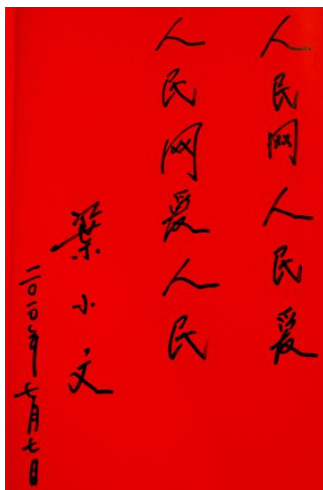 人民网人民爱
人民网爱人民
叶小文
二〇一〇年七月七日